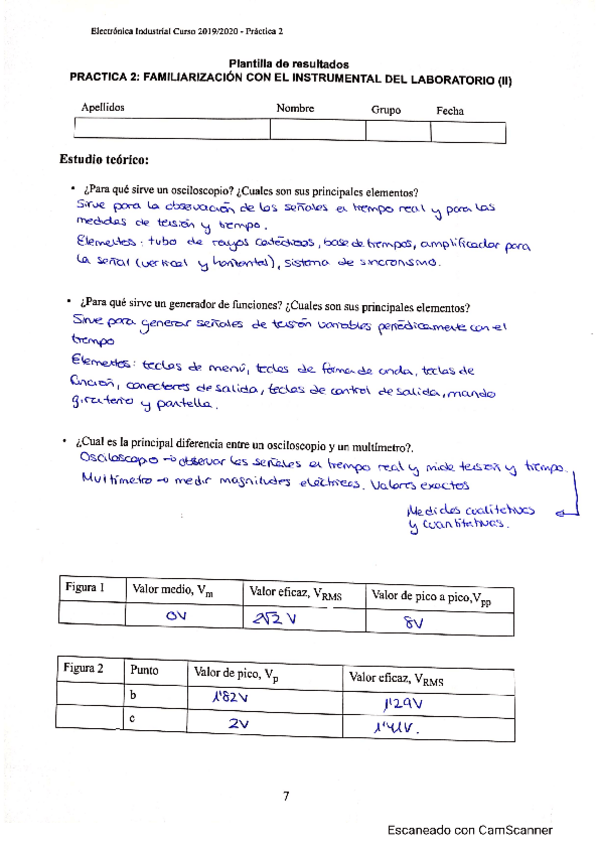 Electrónica Industrial Curso 2019/2020 - Práctica 2
Plantilla de resultados
PRACTICA 2: FAMILIARIZACIÓN CON EL INSTRUMENTAL DEL LABORATORIO (II)
Apellidos Nombre Grupo Fecha
Estudio teórico:
• ¿Para qué sirve un osciloscopio? ¿Cuales son sus principales elementos?
Sirve para la observación de las señales en tiempo real y para las
medidas de tensión y tiempo.
Elementos: tubo de rayos catódicos, base de tiempos, amplificador para
la señal (vertical y horizontal), sistema de sincronismo.
• ¿Para qué sirve un generador de funciones? ¿Cuales son sus principales elementos?
Sirve para generar señales de tensión variables periódicamente con el
tiempo
Elementos: teclas de menú, teclas de forma de onda, teclas de
función, conectores de salida, teclas de control de salida, mando
giratorio y pantalla.
• ¿Cual es la principal diferencia entre un osciloscopio y un multímetro?.
Osciloscopio → observar las señales en tiempo real y mide tensión y tiempo.
Multímetro → medir magnitudes eléctricas. Valores exactos
Medidas cualitativas
y cuantitativas.
Figura 1 Valor medio, Vm Valor eficaz, VRMS Valor de pico a pico,Vpp
0V 2√2 V 8V
Figura 2 Punto Valor de pico, Vp Valor eficaz, VRMS
b 1'82V 1'29V
c 2V 1'41V.
7
Escaneado con CamScanner